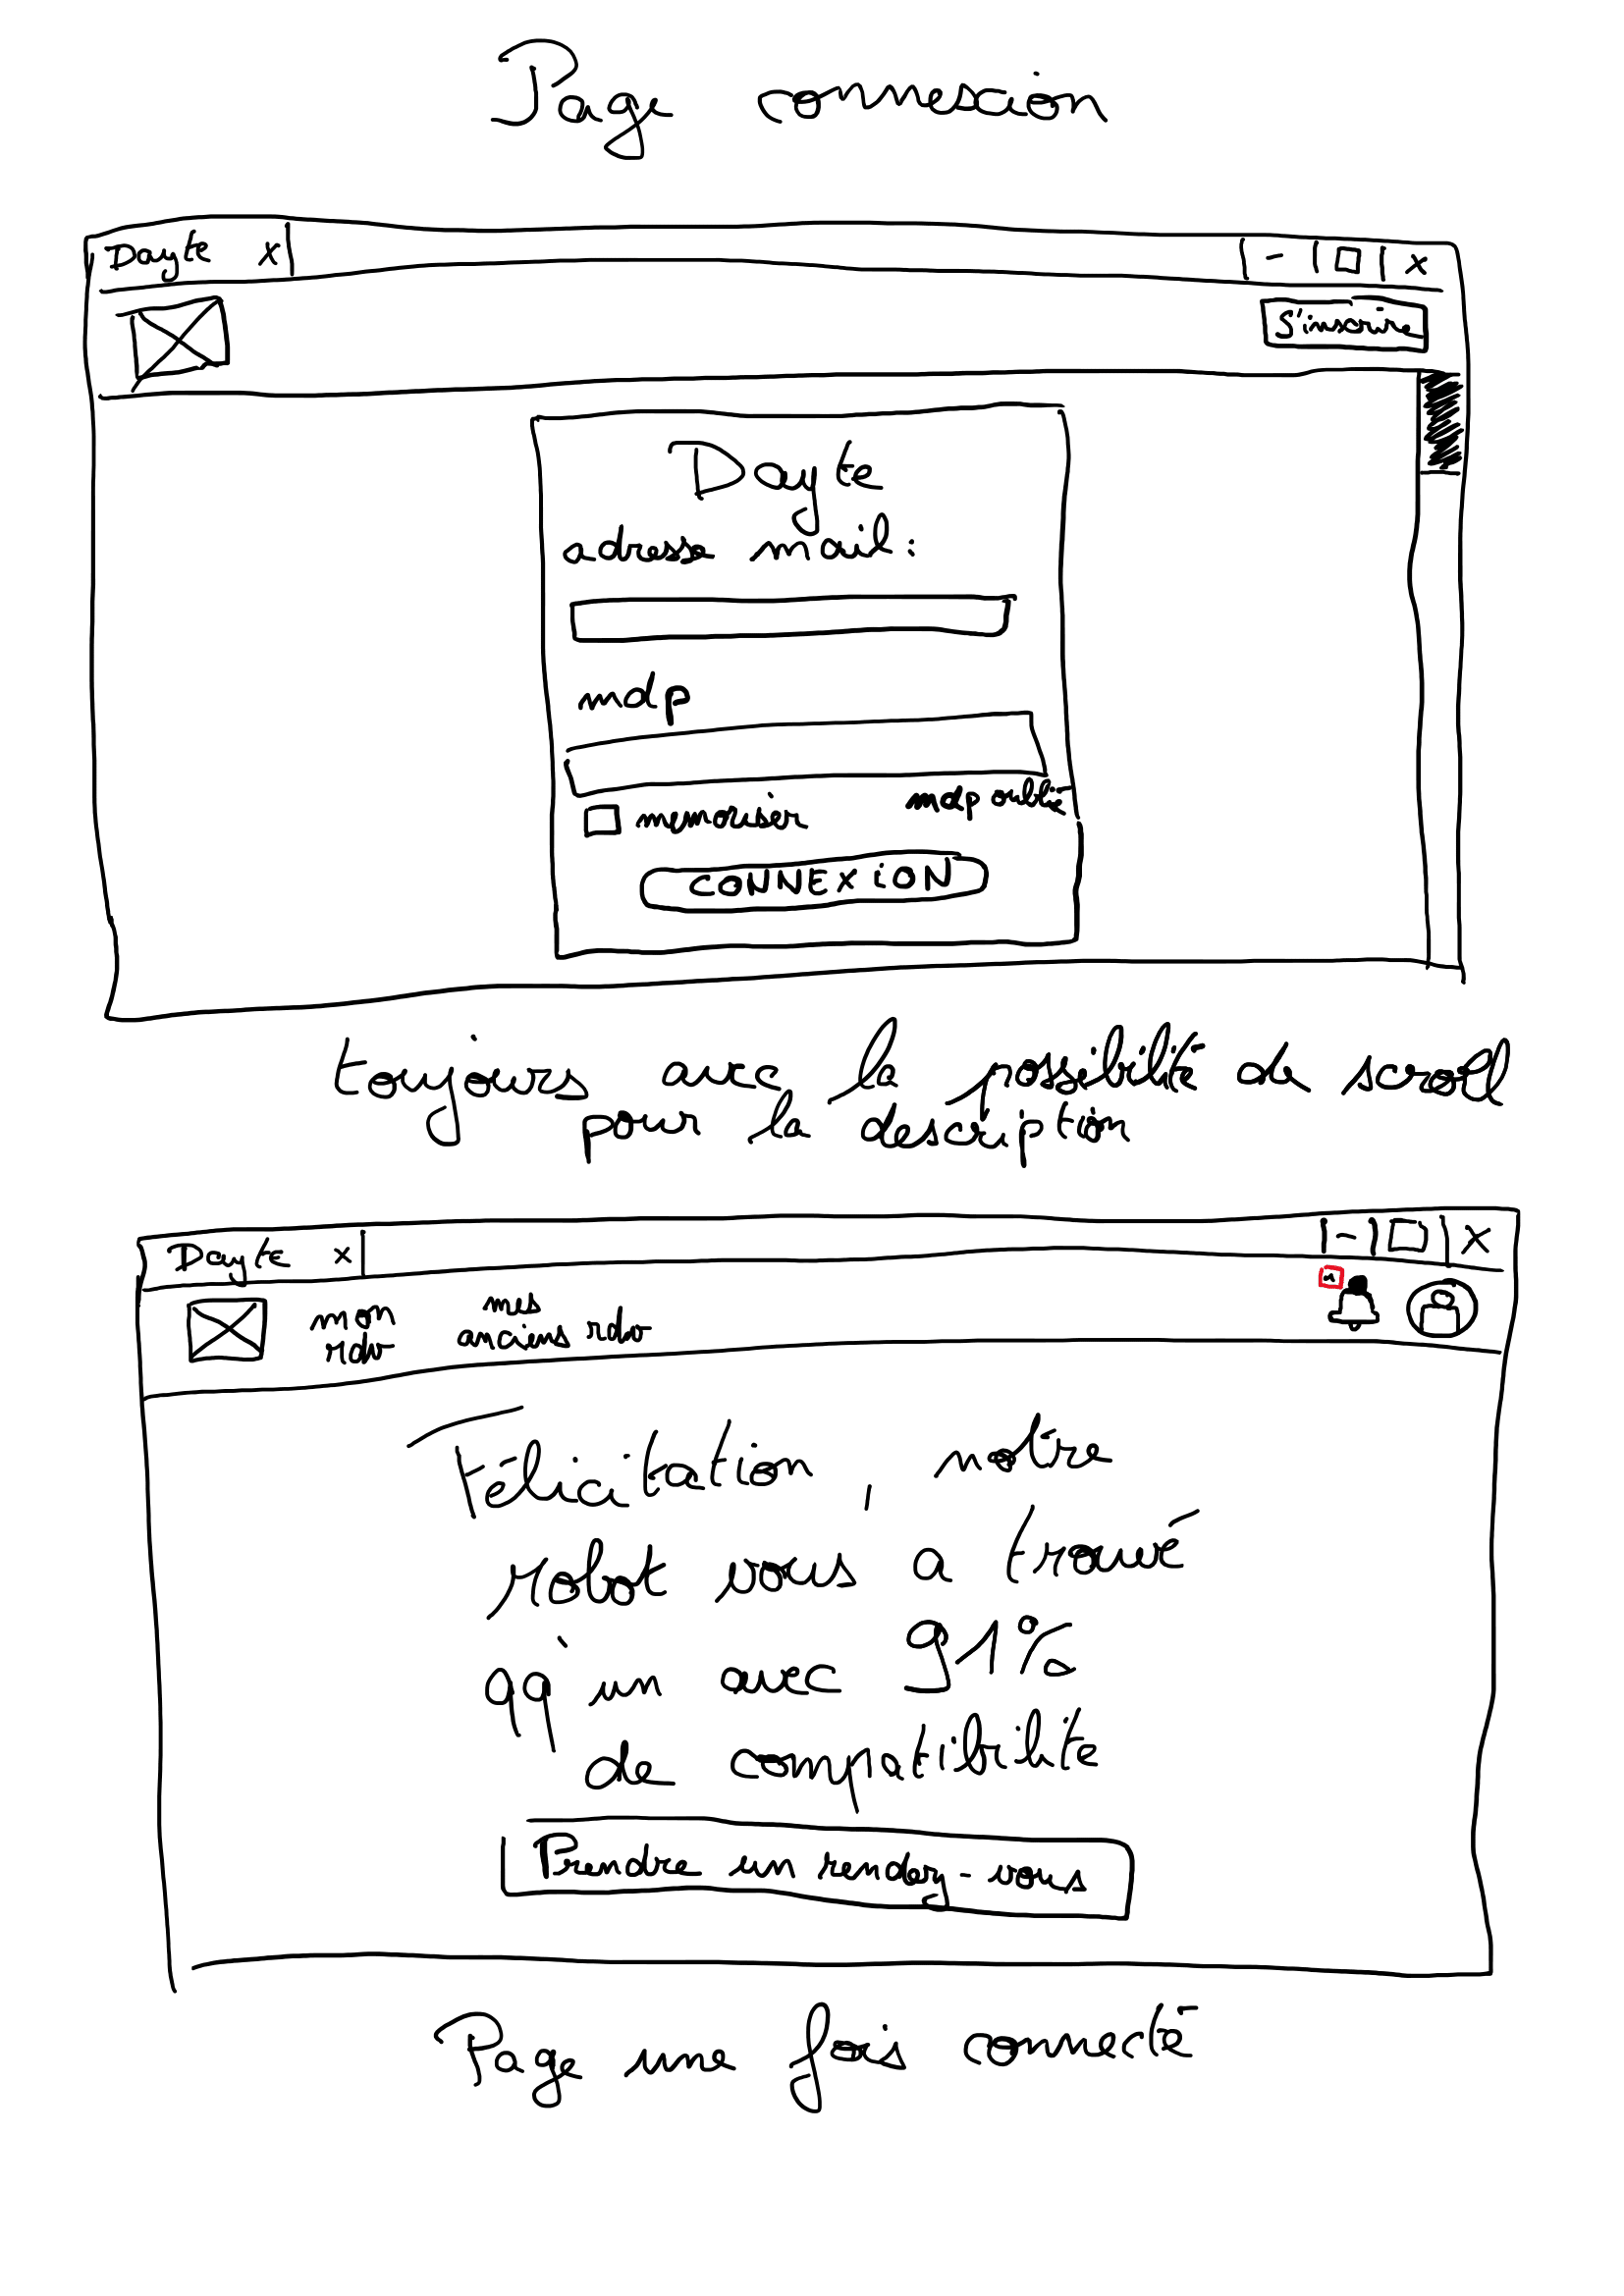 Page connexion
Dayte x
S'inscrire
Dayte
adresse mail :
mdp
memoriser mdp oublié
CONNEXION
toujours avec la possibilité de scroll
pour la description
Dayte x
mon
rdv
mes
anciens rdv
Félicitation, notre
robot vous a trouvé
qq'un avec 91%
de compatibilite
Prendre un rendez-vous
Page une fois connecté